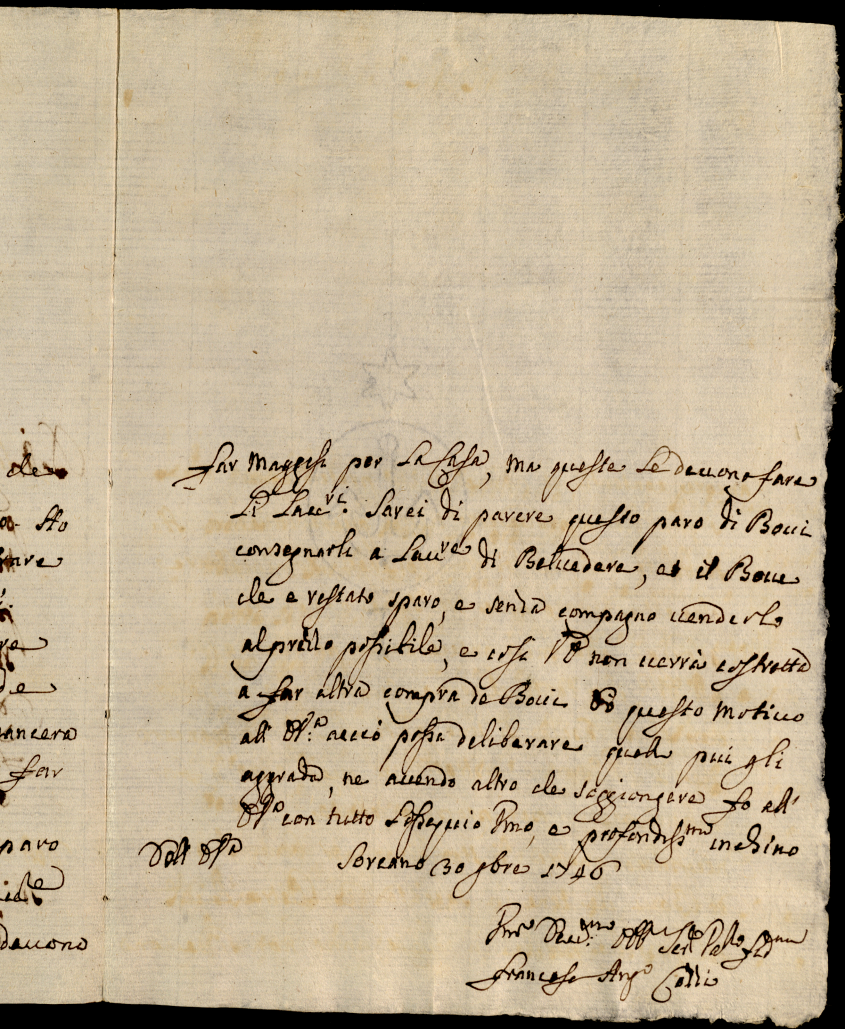 che
Sto
fare
re
de
mancera
far
paro
deuono
far Maggesi per La Casa, ma queste Le deuono fare
Li Lauri. Sarei di parere questo paro di Boui
consegnarli a Laure di Beluedere, et il Boue
che e restato sparo, e senza compagno uenderlo
al prezzo possibile, e cosi non uerrà costretta
a far altra compra de Boui questo motiuo
all' acció possa deliberare quello piu gli
aggrada, ne auendo altro che soggiongere fo all'
con tutto L'ossequio Pmo, e profondissmo inchino
Dall'
Soreano 30 9bre 1746
Francesco Colli